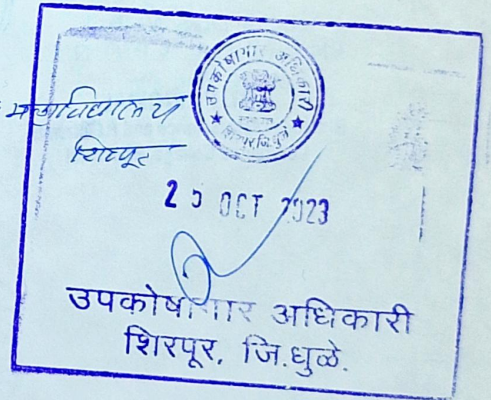 उपकोषागार अधिकारी
शिरपूर, जि. धुळे
महाविद्यालय
शिरपूर
OCT 2023
उपकोषागार अधिकारी
शिरपूर, जि.धुळे.